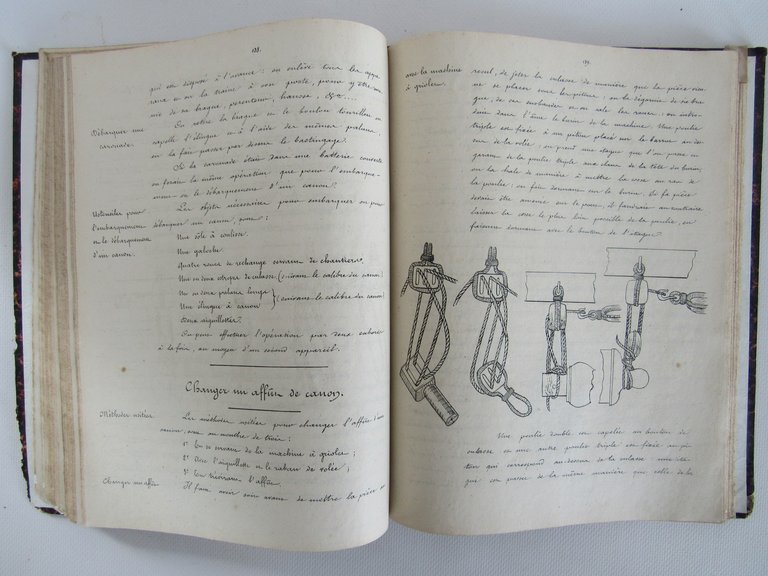 128.
qui est disposé à l'avance: on enlève tous les appa
raux et on la traîne à son poste, pour y être mu
nie de sa brague, percuteur, hausse, &a....
Débarquer une
caronade.
On retire la brague et le bouton tourillon on
capelle l'élingue et à l'aide de mêmes palans,
on la fait passer par dessus le bastingage.
Si la caronade était dans une batterie couverte
on ferait la même opération que pour l'embarque-
ment ou le débarquement d'un canon.
Ustensiles pour
l'embarquement
ou le débarquement
d'un canon.
Les objets nécessaires pour embarquer ou pour
débarquer un canon, sont:
Une tôle à coulisse.
Une galoche
quatre roues de rechange servant de chantiers,
Une ou deux estropes de culasse (suivant le calibre du canon)
Un ou deux palans
Une élingue à canon (suivant le calibre du canon)
Deux aiguillettes.
On peut effectuer l'opération par deux sabords
à la fois, au moyen d'un second appareil.
Changer un affût de canon.
Méthodes usitées
Les méthodes usitées pour changer l'affût d'un
canon, sont au nombre de trois:
1° En se servant de la machine à grioler;
2° Avec l'aiguillette et le raban de volée;
3° En chavirant l'affût.
Changer un affût
Il faut, avoir soin avant de mettre la pièce au
129.
avec la machine
à grioler.
recul, de jeter la culasse de manière que la pièce vien-
ne se placer sous les pitons; on la dégarnit de sa bra
gue, de ses
dans l'âme le burin de la machine. Une poulie
triple est fixée à un piton placé sur le barrot au des-
sus de la volée; on prend une itague que l'on passe en
garant de la poulie triple aux clans de la tête du burin,
on la hale de manière à mettre la croix au ras de
la poulie; on fait dormant sur le burin. Si la pièce
devait être amenée sur le pont, il faudrait au contraire
laisser la croix le plus loin possible de la poulie, en
faisant dormant avec le bouton de l'itague.
Une poulie double est capelée au bouton de
culasse et une autre poulie triple est fixée au pi-
ton qui correspond au-dessus de la culasse: une ita-
gue est passée de la même manière que celle de la